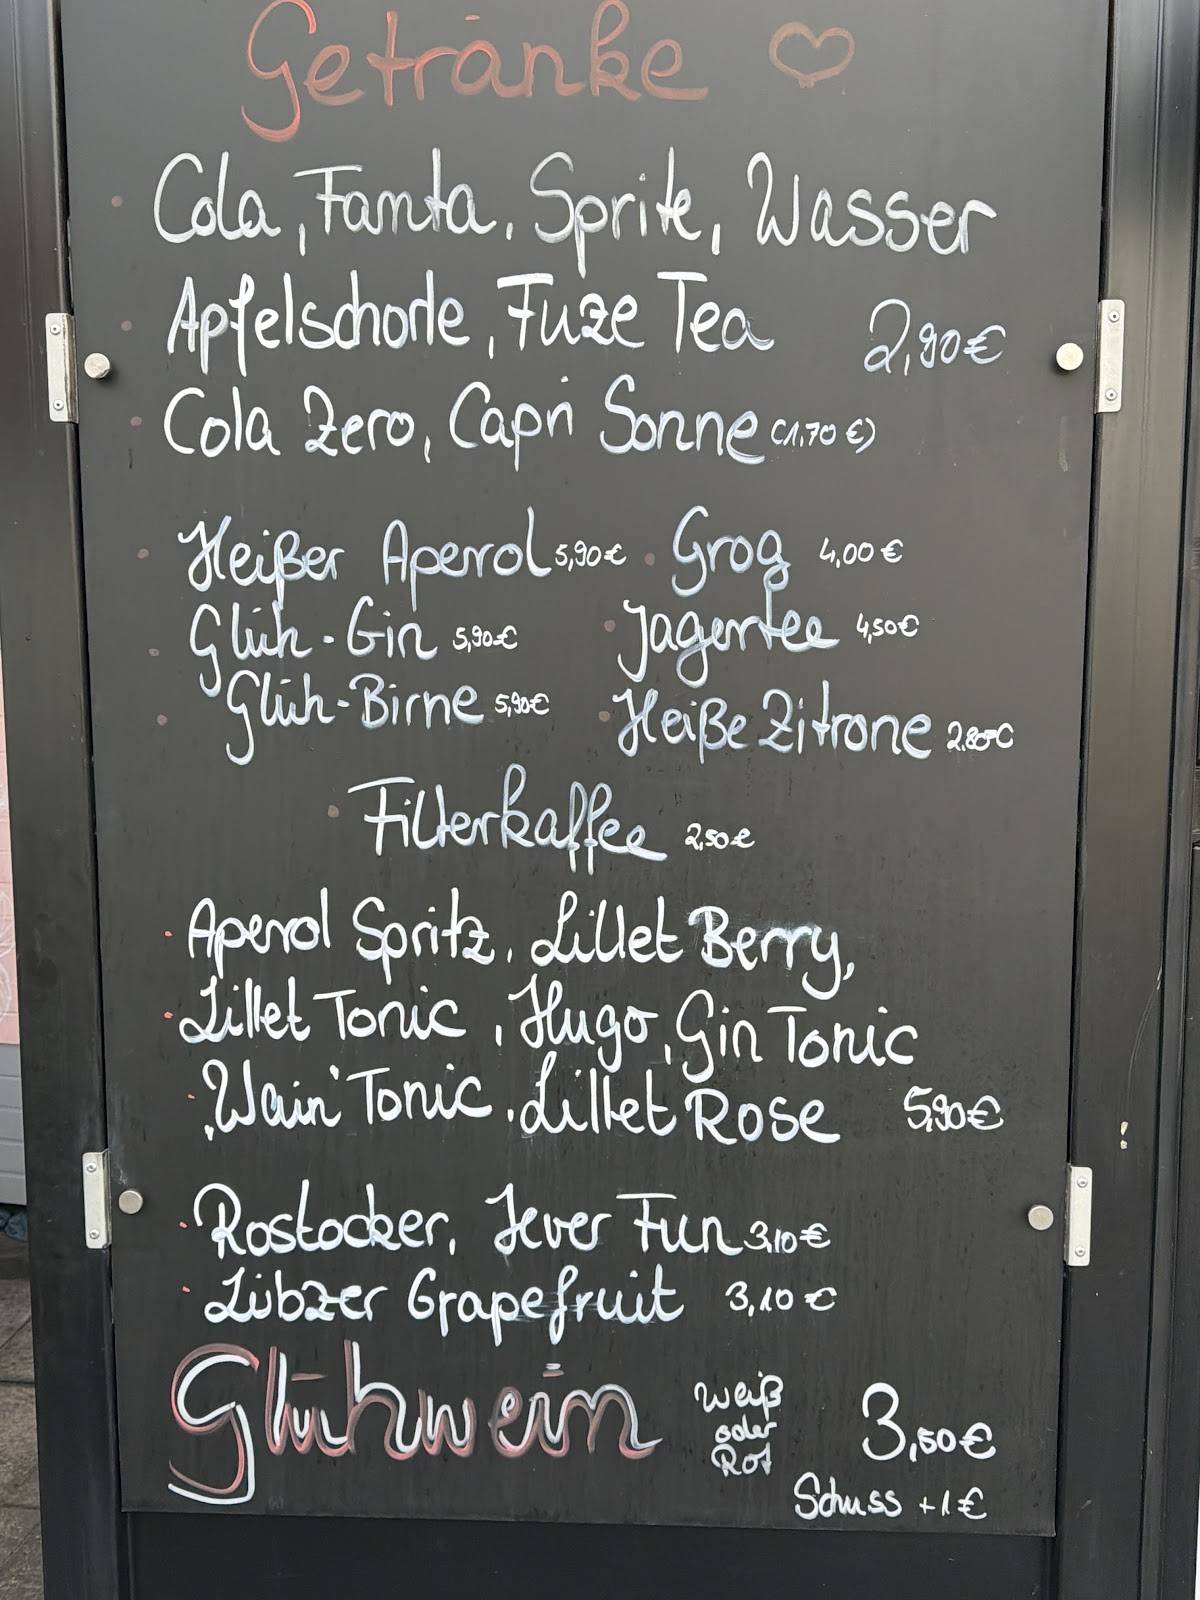 Getränke ♡
Cola, Fanta, Sprite, Wasser
Apfelschorle, Fuze Tea 2,90€
Cola Zero, Capri Sonne (1,70 €)
Heißer Aperol 5,90€ Grog 4,00 €
Glüh-Gin 5,90€ Jagertee 4,50€
Glüh-Birne 5,90€ Heiße Zitrone 2.80€
Filterkaffee 2,50€
Aperol Spritz, Lillet Berry,
Lillet Tonic, Hugo, Gin Tonic
"Wain" Tonic, Lillet Rose 5,90€
Rostocker, Jever Fun 3,10€
Lübzer Grapefruit 3,10€
Glühwein weiß oder Rot 3,50€
Schuss +1€